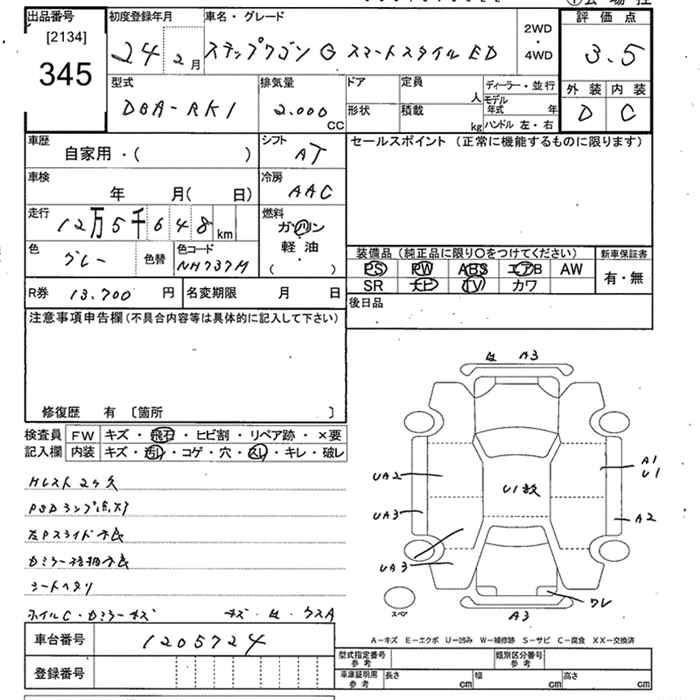 出品番号
[2134]
345
初度登録年月
24 年 2 月
車名・グレード
ステップワゴン G スマートスタイル ED
2WD
・
4WD
評価点
3.5
外装 内装
D C
型式
DBA-RK1
排気量
2.000
CC
ドア
形状
定員
人
積載
kg
ディーラー・並行
モデル
年式 年
ハンドル 左・右
車歴
自家用・( )
シフト
AT
セールスポイント (正常に機能するものに限ります)
車検
年 月( 日)
冷房
AAC
走行
12万5千648km
燃料
ガソリン
・
軽油
( )
色
グレー
色替
色コード
NH737M
装備品 (純正品に限り〇をつけてください)
PS PW ABS エアB AW
SR ナビ TV カワ
新車保証書
有・無
R券 13.700 円
名変期限 月 日
後日品
注意事項申告欄 (不具合内容等は具体的に記入して下さい)
修復歴 有 〔箇所 〕
検査員
記入欄
FW キズ・飛石・ヒビ割・リペア跡・×要
内装 キズ・汚レ・コゲ・穴・スレ・キレ・破レ
PSDランプ点灯
左Pスライド
シートヘタリ
ホイルC・Dミラーキズ
A3
UA2
UA3
UA3
U1
A1
U1
A2
ワレ
A3
スペア
A-キズ E-エクボ U-凹み W-補修跡 S-サビ C-腐食 XX-交換済
車台番号
1205724
登録番号
型式指定番号
参考
類別区分番号
参考
車庫証明用
参考
長さ cm
幅 cm
高さ cm